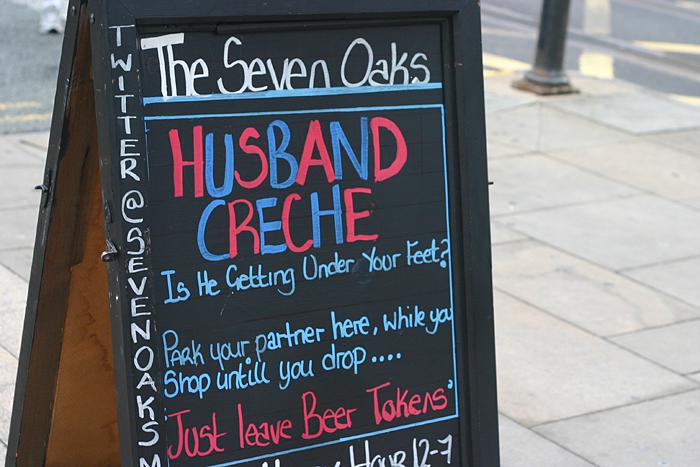 The Seven Oaks
HUSBAND
CRECHE
Is He Getting Under Your Feet?
Park your partner here, while you
Shop untill you drop....
'Just leave Beer Tokens'
Hour 12-7
TWITTER@SEVENOAKSM